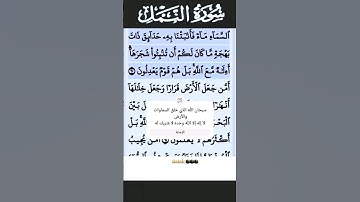 سُورَةُ النَّمْلِ
السَّمَآءِ مَآءً فَأَنۢبَتْنَا بِهِۦ حَدَآئِقَ ذَاتَ
بَهْجَةٍ مَّا كَانَ لَكُمْ أَن تُنۢبِتُوا۟ شَجَرَهَآ
أَءِلَٰهٌ مَّعَ ٱللَّهِ بَلْ هُمْ قَوْمٌ يَعْدِلُونَ
أَمَّن جَعَلَ ٱلْأَرْضَ قَرَارًا وَجَعَلَ خِلَٰلَهَآ
أَنْهَٰرًا
سبحان الله الذي خلق السماوات
والأرض
بَيْنَ
لا إله إلا الله وحده لا شريك له
أَكْثَرُهُمْ لَا يَعْلَمُونَ أَمَّن يُجِيبُ